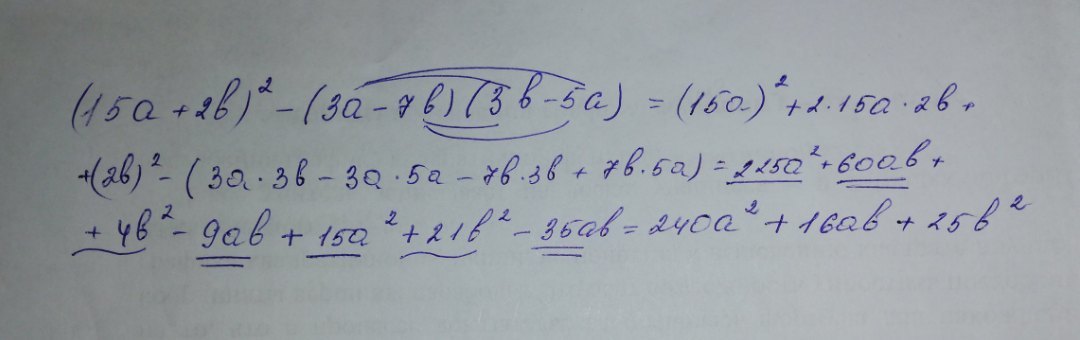 (15a + 2b)² - (3a - 7b)(3b - 5a) = (15a)² + 2·15a·2b +
+(2b)² - (3a·3b - 3a·5a - 7b·3b + 7b·5a) = 225a² + 60ab +
+ 4b² - 9ab + 15a² + 21b² - 35ab = 240a² + 16ab + 25b²